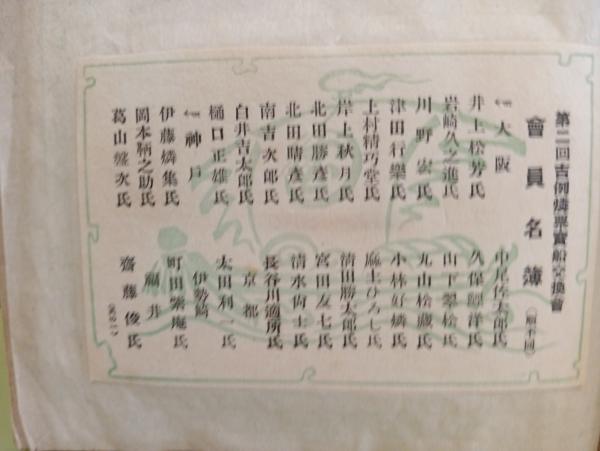 第二回吉例燐票寶船交換會
會員名簿(順不同)
大阪
井上松芳氏
岩崎久之進氏
川野宏氏
津田行樂氏
上村精巧堂氏
岸上秋月氏
北田勝彦氏
北田晴彦氏
南吉次郎氏
白井吉太郎氏
樋口正雄氏
神戸
伊藤燐集氏
岡本鞆之助氏
葛山盤次氏
中尾佐太郎氏
久保 洋氏
山下翠松氏
丸山松藏氏
小林好燐氏
麻土ひろし氏
清田勝太郎氏
宮田友七氏
清水尙士氏
長谷川適所氏
京都
太田利一氏
伊勢崎
町田紫庵氏
福井
齋藤俊氏